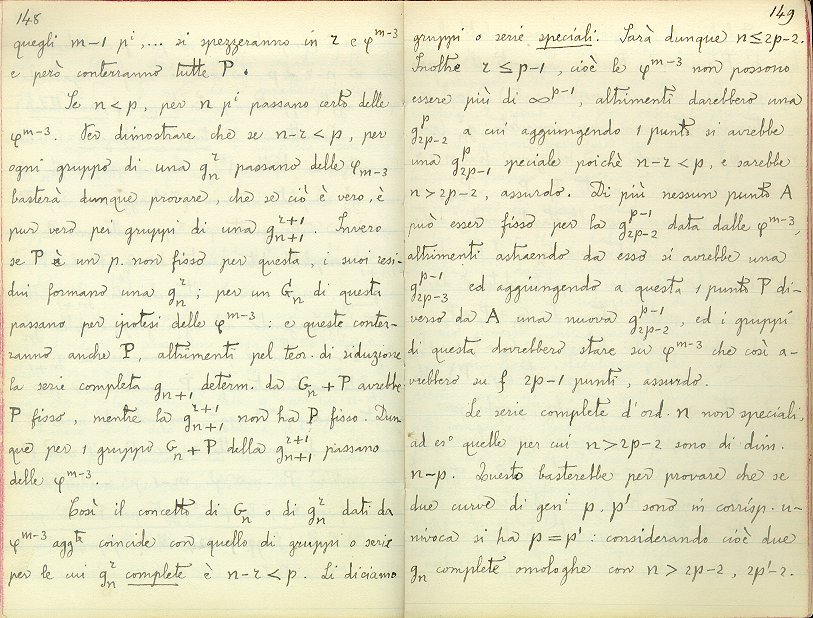 148
quegli m-1 pⁱ,... si spezzeranno in r e φ^{m-3}
e però conterranno tutte P.
Se n < p, per n pⁱ passano certo delle
φ^{m-3}. Per dimostrare che se n-r < p, per
ogni gruppo di una g_n^r passano delle φ_{m-3}
basterà dunque provare, che se ciò è vero, è
pur vero pei gruppi di una g_{n+1}^{r+1}. Invero
se P è un p. non fisso per questa, i suoi resi-
dui formano una g_n^r; per un G_n di questa
passano per ipotesi delle φ^{m-3}: e queste conter-
ranno anche P, altrimenti pel teor. di riduzione
la serie completa g_{n+1} determ. da G_n + P avrebbe
P fisso, mentre la g_{n+1}^{r+1} non ha P fisso. Dun-
que per 1 gruppo G_n + P della g_{n+1}^{r+1} passano
delle φ^{m-3}.
Così il concetto di G_n o di g_n^r dati da
φ^{m-3} aggte coincide con quello di gruppi o serie
per le cui g_n^r complete è n-r < p. Li diciamo
149
gruppi o serie speciali. Sarà dunque n ≤ 2p-2.
Inoltre r ≤ p-1, cioè le φ^{m-3} non possono
essere più di ∞^{p-1}, altrimenti darebbero una
g_{2p-2}^p a cui aggiungendo 1 punto si avrebbe
una g_{2p-1}^p speciale poichè n-r < p, e sarebbe
n > 2p-2, assurdo. Di più nessun punto A
può esser fisso per la g_{2p-2}^{p-1} data dalle φ^{m-3},
altrimenti astraendo da esso si avrebbe una
g_{2p-3}^{p-1} ed aggiungendo a questa 1 punto P di-
verso da A una nuova g_{2p-2}^{p-1}, ed i gruppi
di questa dovrebbero stare su φ^{m-3} che così a-
vrebbero su f 2p-1 punti, assurdo.
Le serie complete d'ord. n non speciali,
ad es° quelle per cui n > 2p-2 sono di dim.
n-p. Questo basterebbe per provare che se
due curve di gen' p, p' sono in corrisp. u-
nivoca si ha p = p': considerando cioè due
g_n complete omologhe con n > 2p-2, 2p'-2.